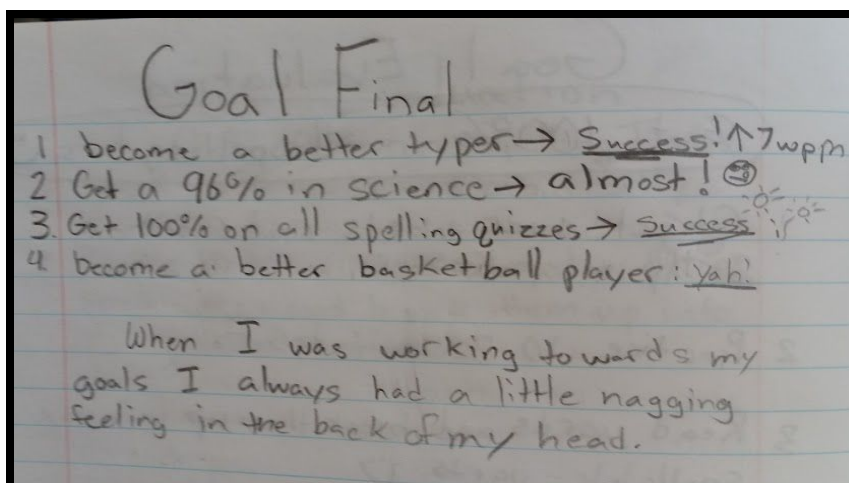 Goal Final
1 become a better typer→ Success! ↑7wpm
2 Get a 96% in science→ almost!
3. Get 100% on all spelling quizzes→ Success
4 become a better basketball player: yah!
When I was working towards my
goals I always had a little nagging
feeling in the back of my head.